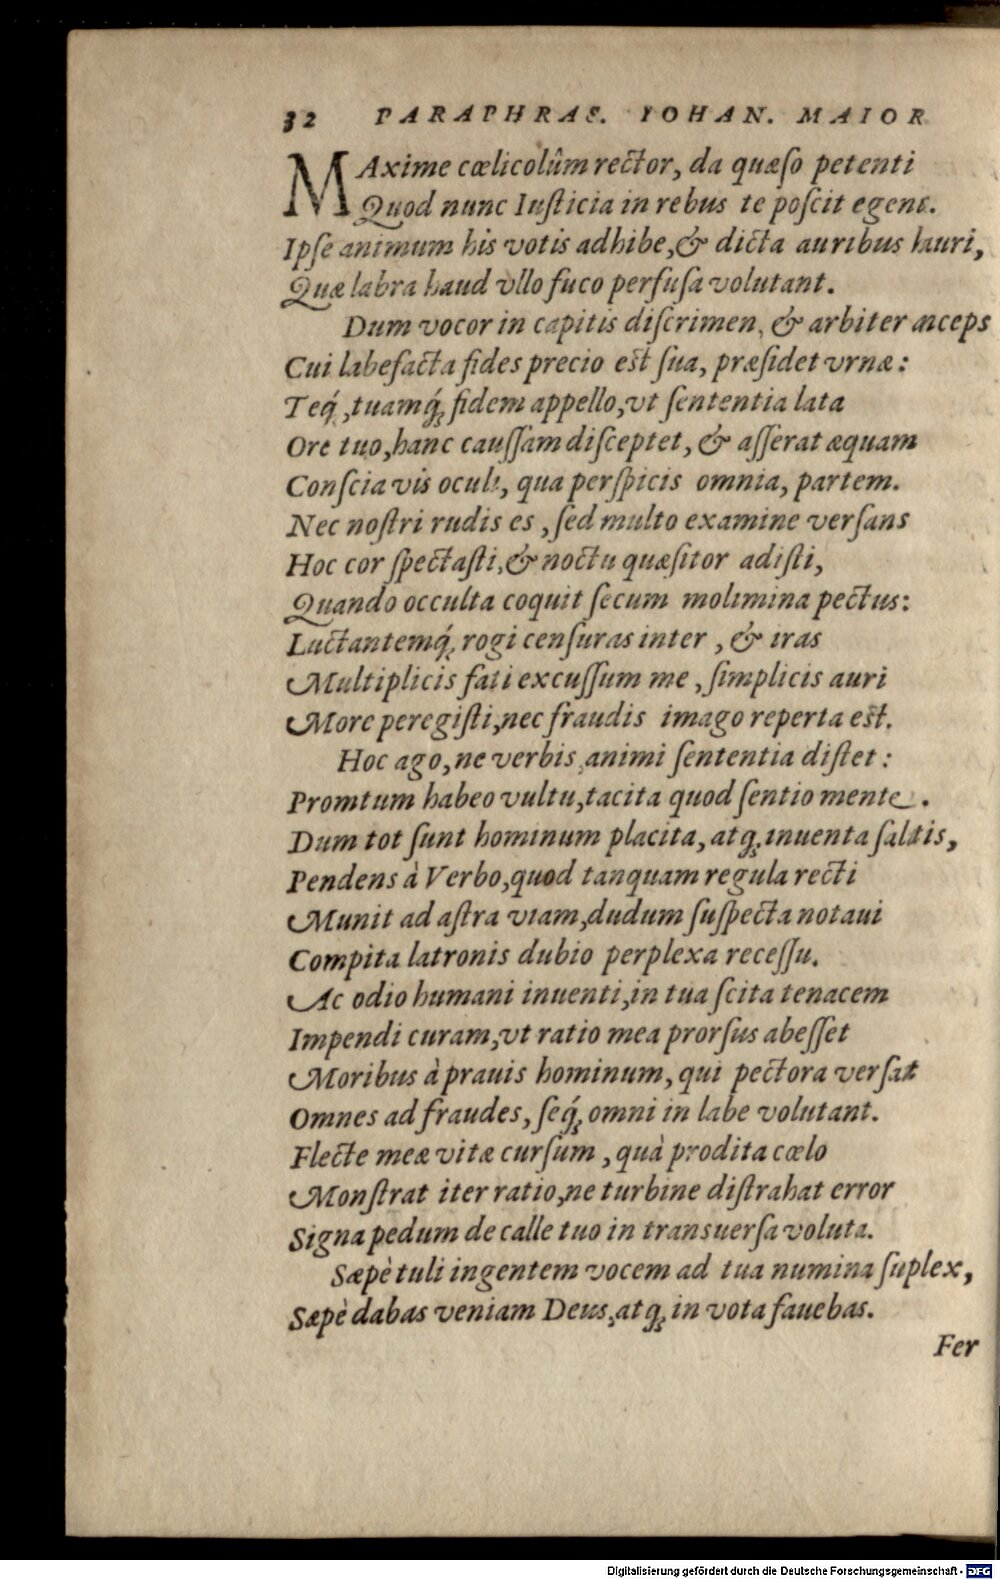 32 PARAPHRAS. IOHAN. MAIOR
MAxime cœlicolûm rector, da quæſo petenti
Quod nunc Iuſticia in rebus te poſcit egens.
Ipſe animum his votis adhibe, & dicta auribus hauri,
Quæ labra haud vllo fuco perfuſa volutant.
Dum vocor in capitis diſcrimen, & arbiter anceps
Cui labefacta fides precio est ſua, præſidet vrnæ:
Teq́, tuamq́; fidem appello, vt ſententia lata
Ore tuo, hanc cauſſam diſceptet, & aſſerat æquam
Conſcia vis oculi, qua perſpicis omnia, partem.
Nec noſtri rudis es, ſed multo examine verſans
Hoc cor ſpectaſti, & noctu quæſitor adiſti,
Quando occulta coquit ſecum molimina pectus:
Luctantemq́; rogi cenſuras inter, & iras
Multiplicis fati excuſſum me, ſimplicis auri
More peregiſti, nec fraudis imago reperta est.
Hoc ago, ne verbis, animi ſententia diſtet:
Promtum habeo vultu, tacita quod ſentio mente.
Dum tot ſunt hominum placita, atq; inuenta ſalutis,
Pendens à Verbo, quod tanquam regula recti
Munit ad aſtra viam, dudum ſuſpecta notaui
Compita latronis dubio perplexa receſſu.
Ac odio humani inuenti, in tua ſcita tenacem
Impendi curam, vt ratio mea prorſus abeſſet
Moribus à prauis hominum, qui pectora verſat
Omnes ad fraudes, ſeq́; omni in labe volutant.
Flecte meæ vitæ curſum, quà prodita cœlo
Monſtrat iter ratio, ne turbine diſtrahat error
Signa pedum de calle tuo in transuerſa voluta.
Sæpè tuli ingentem vocem ad tua numina ſuplex,
Sæpè dabas veniam Deus, atq; in vota fauebas.
Fer
Digitalisierung gefördert durch die Deutsche Forschungsgemeinschaft - DFG